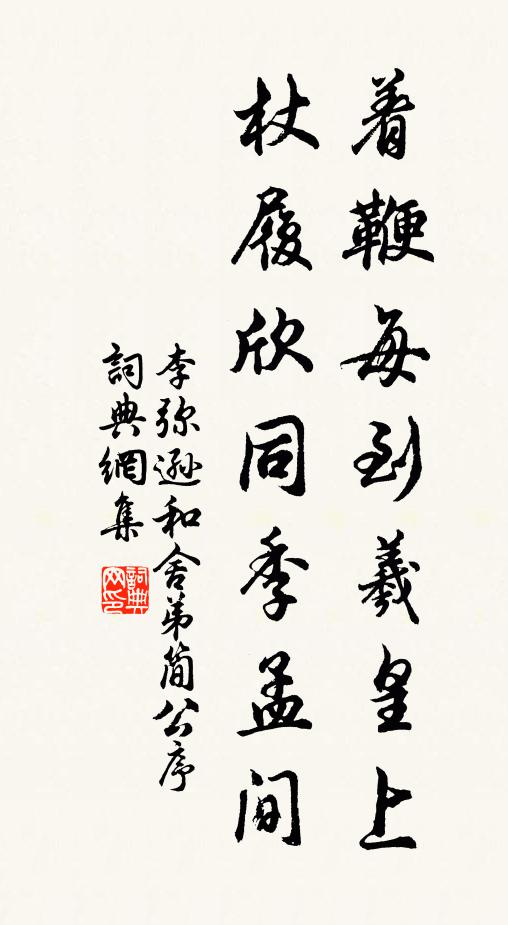 着鞭每到羲皇上
杖履欣同季孟間
李弥遜和舍弟簡公序
詞典網集
詞典网印